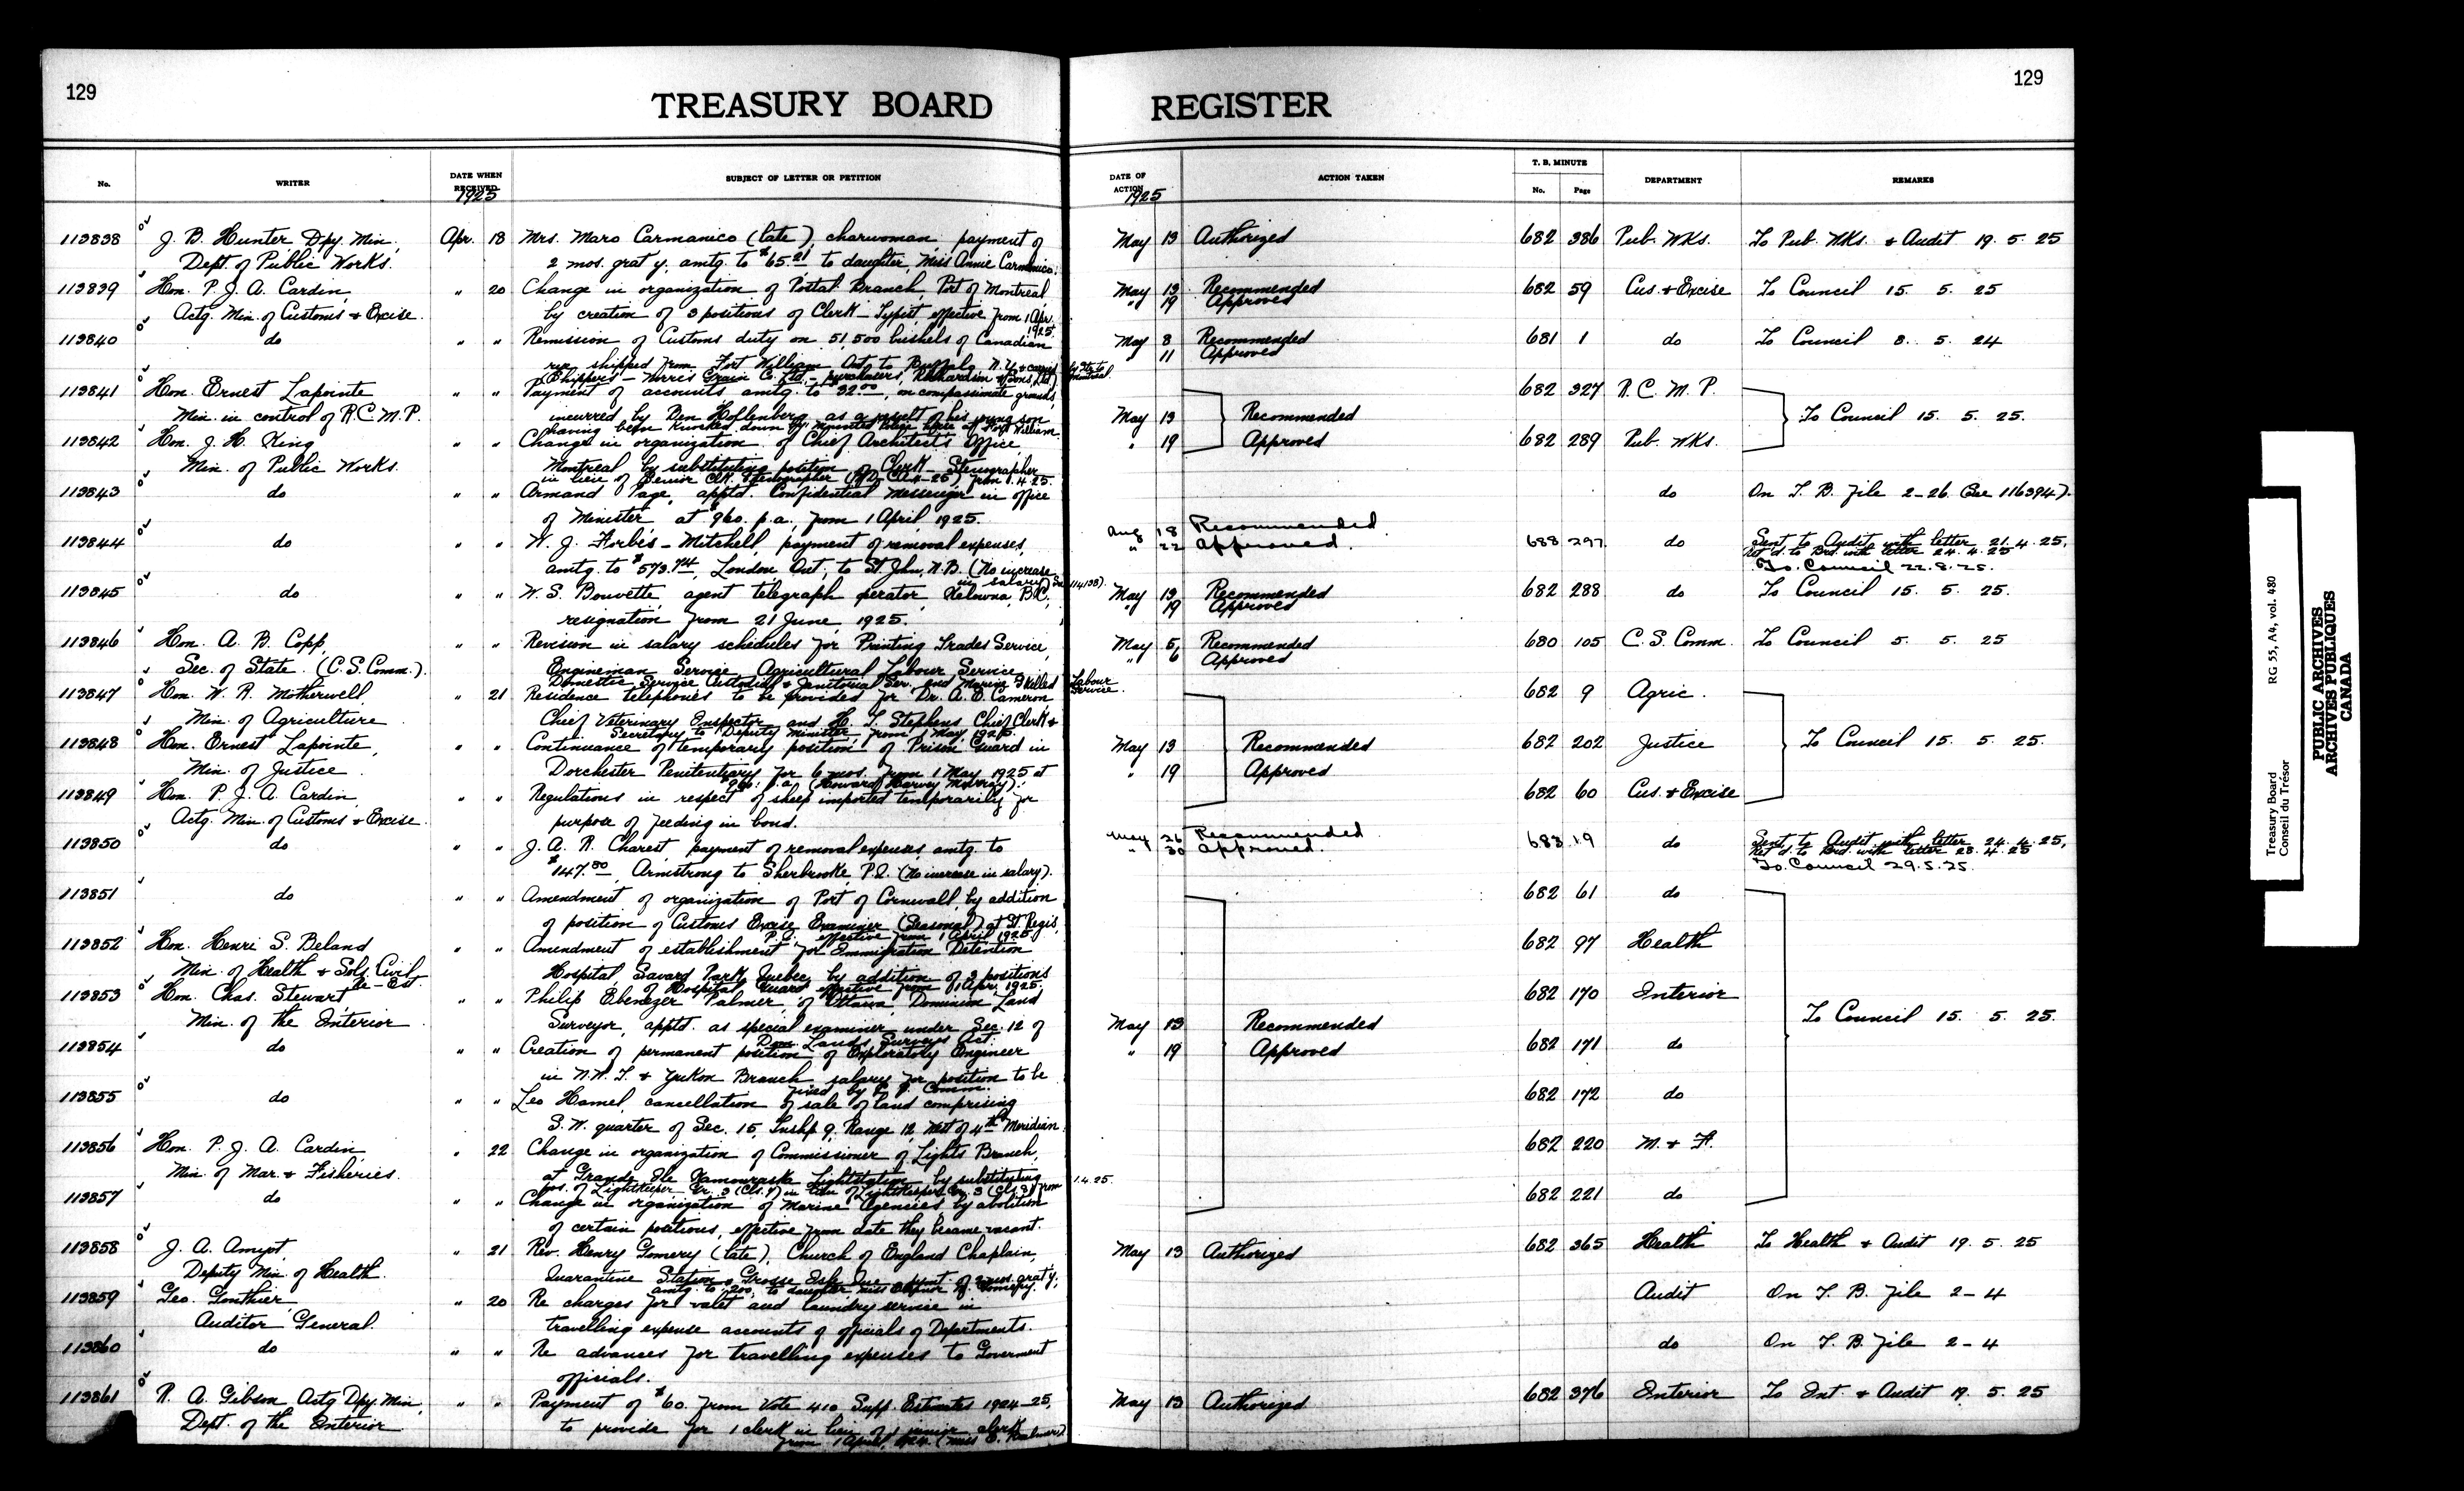 129
TREASURY BOARD
REGISTER
129
No.
WRITER
DATE WHEN RECEIVED
1925
SUBJECT OF LETTER OR PETITION
DATE OF ACTION
1925
ACTION TAKEN
T. B. MINUTE
No.
Page
DEPARTMENT
REMARKS
113838 J. B. Hunter, Dpy. Min., Apr. 18 Mrs. Maro Carmanico (late), charwoman, payment of May 13 Authorized 682 386 Pub. Wks. To Pub. Wks. & Audit 19. 5. 25
Dept. of Public Works. 2 mos. grat'y. amtg. to $65.21 to daughter, Miss Annie Carmanico.
113839 Hon. P. J. A. Cardin, " 20 Change in organization of Postal Branch, Port of Montreal, May 13 Recommended 682 59 Cus. & Excise To Council 15. 5. 25
Actg. Min. of Customs & Excise. by creation of 3 positions of Clerk-Typist, effective from 1 Apr. 1925. " 19 Approved
113840 do " " Remission of Customs duty on 51,500 bushels of Canadian May 8 Recommended 681 1 do To Council 8. 5. 24
rye shipped from Fort William Ont. to Buffalo, N.Y. & " 11 Approved
Shippers - Norris Grain Co. Ltd. - purchasers, Richardson & Sons, Ltd.
113841 Hon. Ernest Lapointe " " Payment of accounts amtg. to $32.00, on compassionate grounds, 682 327 R. C. M. P.
Min. in control of R.C.M.P. incurred by Ben Hollenberg as a result of his young son May 13 Recommended To Council 15. 5. 25.
having been knocked down by mounted police horse at Fort William.
113842 Hon. J. H. King " " Change in organization of Chief Architect's Office, " 19 Approved 682 289 Pub. Wks.
Min. of Public Works. Montreal by substituting position of Clerk-Stenographer
in lieu of Senior Clk. Stenographer from 1.4.25.
113843 do " " Armand Page, apptd. Confidential Messenger in office do On T. B. File 2-26. (See 116394).
of Minister, at $960. p.a., from 1 April, 1925.
113844 do " " W. J. Forbes-Mitchell, payment of removal expenses, Aug 18 Recommended 688 297 do Sent to Audit with letter 21.4.25,
amtg. to $573.74, London Ont., to St. John, N.B. (No increase " 22 Approved. Ret'd. to Brd. with letter 24.4.25
in salary) (See 114138). To Council 22.8.25.
113845 do " " W. S. Bouvette, agent telegraph operator, Kelowna, B.C., May 13 Recommended 682 288 do To Council 15. 5. 25.
resignation from 21 June, 1925. " 19 Approved
113846 Hon. A. B. Copp, " " Revision in salary schedules for Printing Trades Service, May 5 Recommended 680 105 C. S. Comm. To Council 5. 5. 25
Sec. of State. (C.S. Comm.). Engineman Service, Agricultural Labour Service, " 6 Approved
Domestic Service, Custodial & Janitorial Ser. and Marine Skilled Labour Service.
113847 Hon. W. R. Motherwell " 21 Residence telephones to be provided for Dr. A. E. Cameron, 682 9 Agric.
Min. of Agriculture Chief Veterinary Inspector and H. T. Stephens Chief Clerk &
Secretary to Deputy Minister from 1 May, 1925.
113848 Hon. Ernest Lapointe, " " Continuance of temporary position of Prison Guard in May 13 Recommended 682 202 Justice To Council 15. 5. 25.
Min. of Justice. Dorchester Penitentiary for 6 mos. from 1 May 1925 at " 19 Approved
$960. p.a. (Howard Harvey Murray).
113849 Hon. P. J. A. Cardin, " " Regulations in respect of sheep imported temporarily for 682 60 Cus. & Excise
Actg. Min. of Customs & Excise. purpose of feeding in bond.
113850 do " " J. A. R. Charest, payment of removal expenses, amtg. to May 26 Recommended 683 19 do Sent to Audit with letter 24.4.25,
$147.80, Armstrong to Sherbrooke, P.Q. (No increase in salary). " 30 Approved. Ret'd. to Brd. with letter 28.4.25
To Council 29.5.25.
113851 do " " Amendment of organization of Port of Cornwall, by addition 682 61 do
of position of Customs Excise Examiner (Seasonal) at St. Regis,
P.Q., effective from 1 April 1925.
113852 Hon. Henri S. Beland " " Amendment of establishment for Immigration Detention 682 97 Health
Min. of Health & Sol. Civil Re-Est. Hospital Savard Park, Quebec, by addition of 3 positions
of Hospital Guard effective from 1 Apr. 1925.
113853 Hon. Chas. Stewart " " Philip Ebenezer Palmer, of Ottawa, Dominion Land 682 170 Interior
Min. of the Interior Surveyor, apptd. as special examiner under Sec. 12 of May 13 Recommended To Council 15. 5. 25.
Dom. Lands Surveys Act.
113854 do " " Creation of permanent position of Exploratory Engineer " 19 Approved 682 171 do
in N.W.T. & Yukon Branch salary for position to be
fixed by C. S. Comm.
113855 do " " Leo Hamel, cancellation of sale of land comprising 682 172 do
S.W. quarter of Sec. 15, Tnshp 9, Range 12, West of 4th Meridian.
113856 Hon. P. J. A. Cardin " 22 Change in organization of Commissioner of Lights Branch, 682 220 M. & F.
Min. of Mar. & Fisheries. at Grande Ile Kamouraska Lightstation, by substituting
pos. of Lightkeeper Gr. 3 in lieu of Lightkeeper Gr. 3 from 1.4.25.
113857 do " " Change in organization of Marine Agencies by abolition 682 221 do
of certain positions, effective from date they became vacant.
113858 J. A. Amyot, " 21 Rev. Henry Gomery (late), Church of England Chaplain, May 13 Authorized 682 365 Health To Health & Audit 19. 5. 25
Deputy Min. of Health. Quarantine Station, Grosse Isle Que. paymt. of 2 mos. grat'y.
amtg. to $200. to daughter, Miss Gomery.
113859 Geo. Gonthier, " 20 Re charges for valet and laundry service in Audit On T. B. File 2-4
Auditor General. travelling expense accounts of officials of Departments.
113860 do " " Re advances for travelling expenses to Goverment do On T. B. File 2-4
officials.
113861 R. A. Gibson, Actg Dpy. Min., " " Payment of $60. from Vote 410 Supp. Estimates 1924-25, May 13 Authorized 682 376 Interior To Int. & Audit 19. 5. 25
Dept. of the Interior to provide for 1 clerk in lieu of junior clerk
from 1 April, 1924.
Treasury Board RG 55, A4, vol. 480
Conseil du Trésor
PUBLIC ARCHIVES
ARCHIVES PUBLIQUES
CANADA